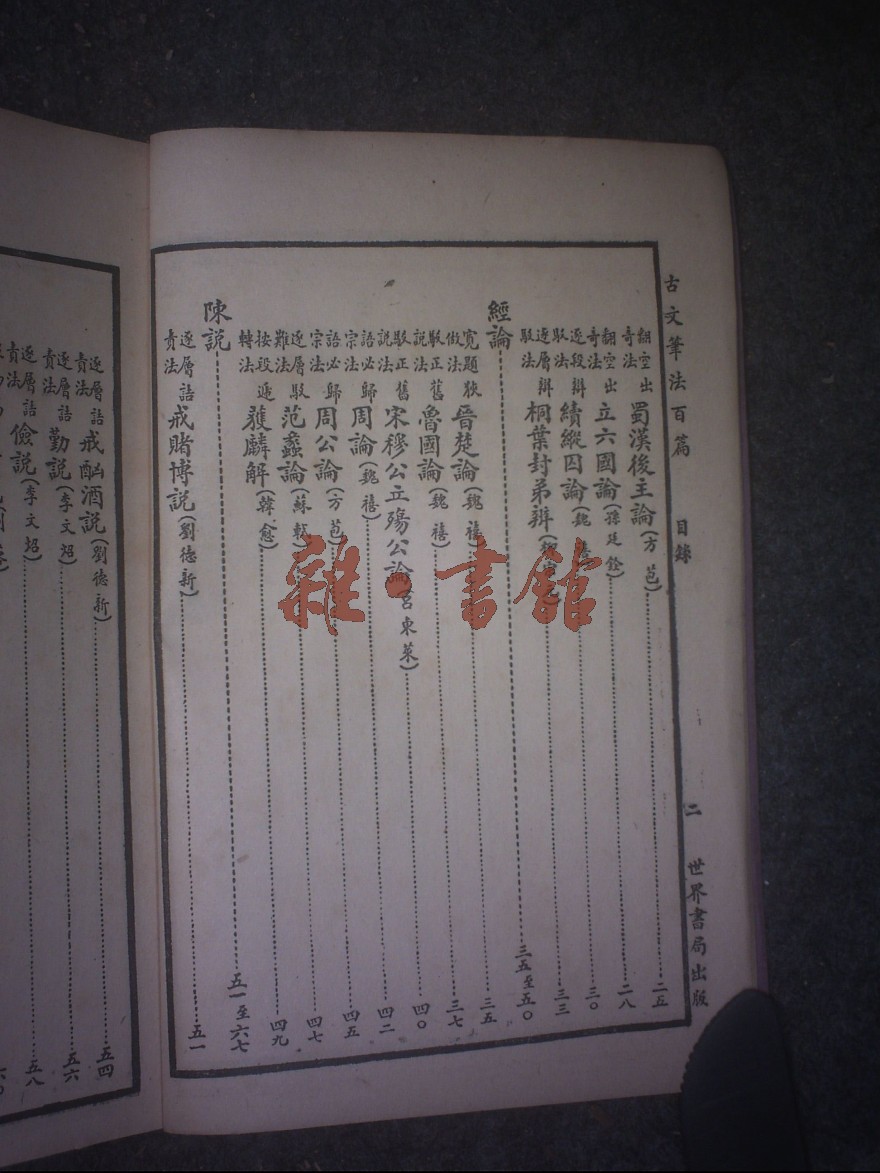 古文筆法百篇 目錄 二 世界書局出版
翻空出奇法 蜀漢後主論(方苞) 二五
翻空出奇法 立六國論(孫廷銓) 二八
逐段辯駁法 續縱囚論(魏禧) 三〇
逐層辯駁法 桐葉封弟辨 三三
經論 三五至五〇
寬題狹做法 晉楚論(魏禧) 三五
駁正舊説法 魯國論(魏禧) 三七
駁正舊説法 宋穆公立殤公論(呂東萊) 四〇
語必歸宗法 周論(魏禧) 四二
語必歸宗法 周公論(方苞) 四五
逐層駁難法 范蠡論(蘇軾) 四七
按段遞轉法 獲麟解(韓愈) 四九
陳説 五一至六七
逐層詰責法 戒賭博説(劉德新) 五一
逐層詰責法 戒酗酒説(劉德新) 五四
逐層詰責法 勤説(李文炤) 五六
逐層詰責法 儉説(李文炤) 五八
雜·書館